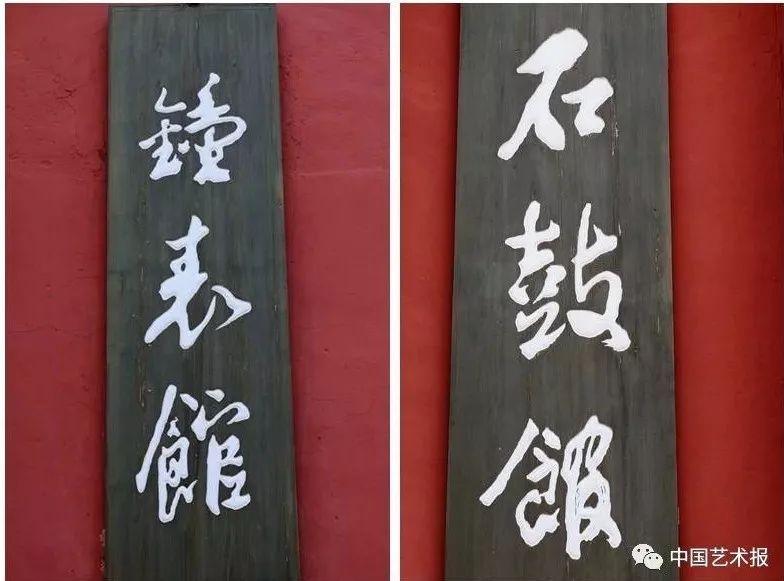 鐘表館
石鼓館
中国艺术报